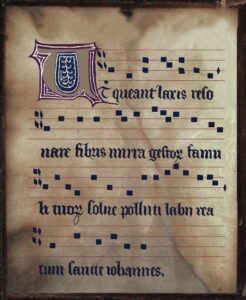 Ut queant laxis reso
nare fibris mira gestoꝝ famu
li tuoꝝ solve polluti labii rea
tum sancte iohannes.